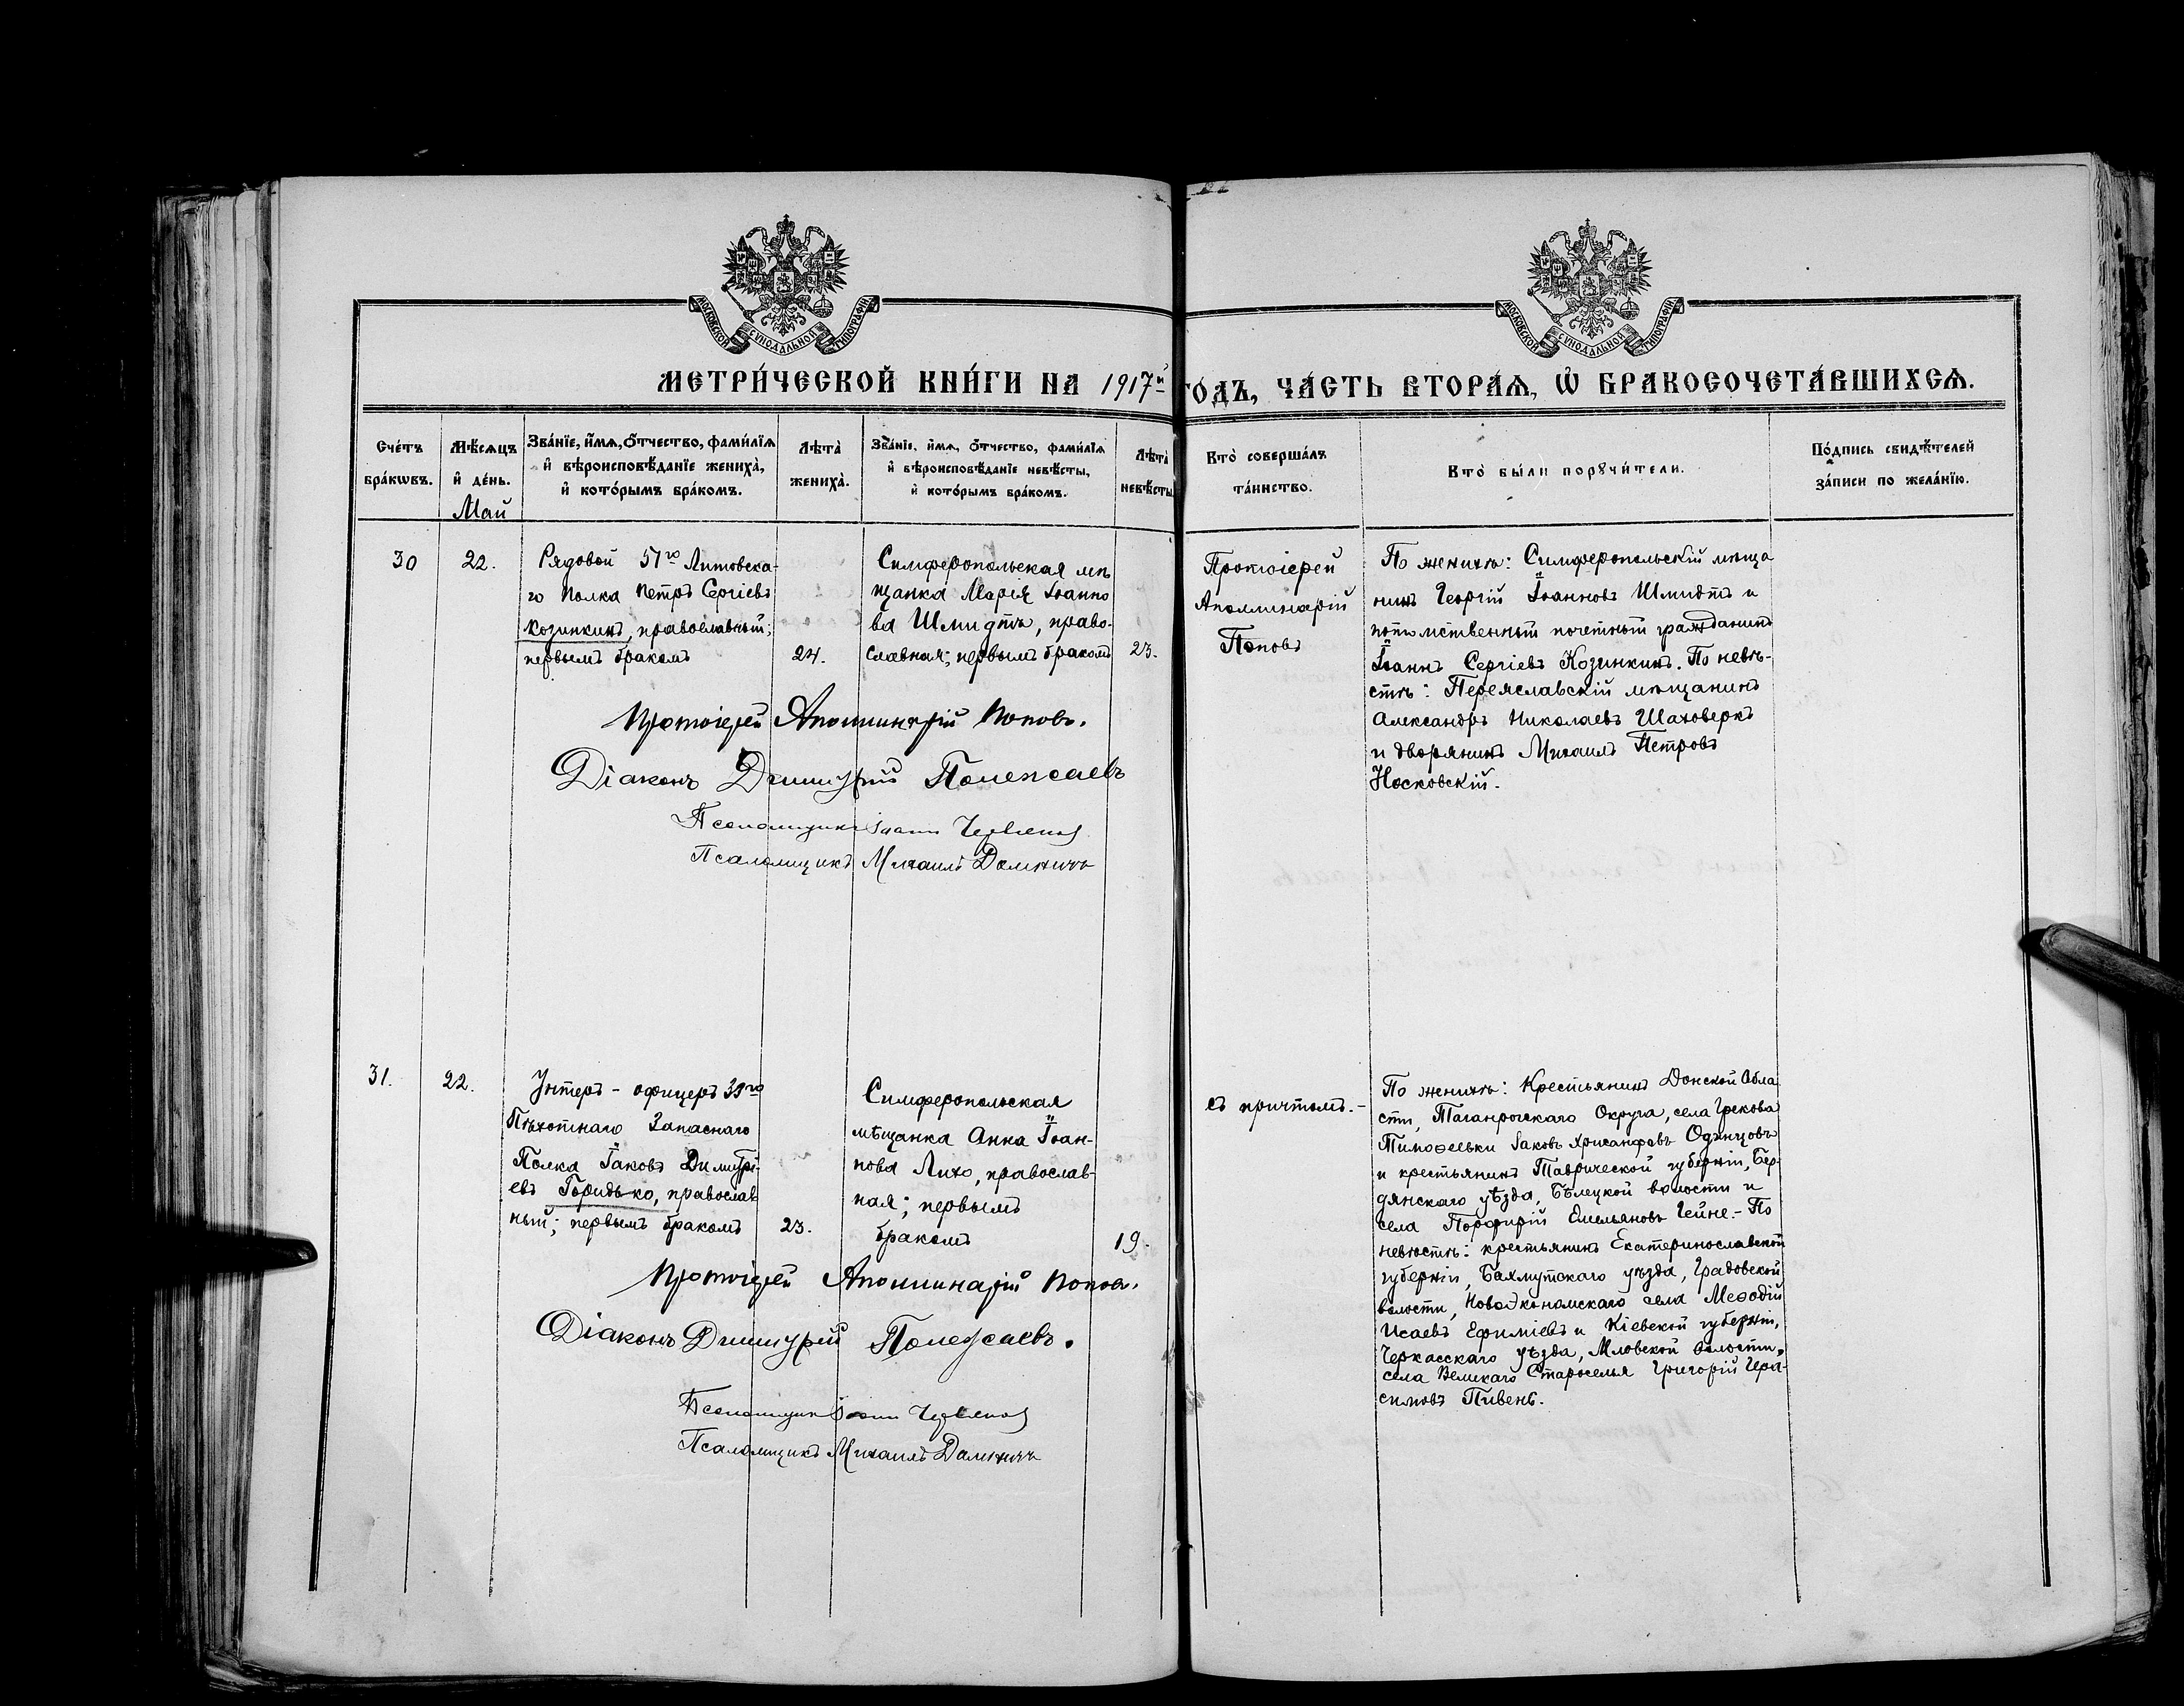 МОСКОВСКОЙ СѴНОДАЛЬНОЙ ТИПОГРАФІИ
МОСКОВСКОЙ СѴНОДАЛЬНОЙ ТИПОГРАФІИ
МЕТРИ́ЧЕСКОЙ КНИ́ГИ НА 1917й ГО́ДЪ, ЧА́СТЬ ВТОРА́Ѧ, Ѡ҆ БРАКОСОЧЕТА́ВШИХСѦ.
Сче́тъ
бра́кѡвъ.
Мѣ́сѧцъ
и҆ де́нь.
Май
Зва́нїе, и҆́мѧ, ѻ҆́тчество, фами́лїѧ
и҆ вѣроисповѣ́данїе жениха̀,
и҆ кото́рымъ бра́комъ.
Лѣта̀
жениха̀.
Зва́нїе, и҆́мѧ, ѻ҆́тчество, фами́лїѧ
и҆ вѣроисповѣ́данїе невѣ́сты,
и҆ кото́рымъ бра́комъ.
Лѣта̀
невѣ́сты
Кто̀ соверша́лъ
та́инство.
Кто̀ бы́ли порꙋчи́тели.
По́дпись свидѣ́телей
за́писи по жела́нїю.
30
22.
Рядовой 51го Литовска-
го Полка Петръ Сергіевъ
Козинкинъ, православный;
первымъ бракомъ
24.
Симферопольская мѣ
щанка Марія Іоанно
ва Шмидтъ, право-
славная; первымъ бракомъ
23.
Протоіерей
Аполлинарій
Поповъ
По женихѣ: Симферопольскій мѣща
нинъ Георгій Іоанновъ Шмидтъ и
потомственный почетный гражданинъ
Іоаннъ Сергіевъ Козинкинъ. По невѣ-
стѣ: Переяславскій мѣщанинъ
Александръ Николаевъ Шаховеркъ
и дворянинъ Михаилъ Петровъ
Носковскій.
Протоіерей Аполлинарій Поповъ.
Діаконъ Димитрій Полежаевъ
Псаломщикъ Іоаннъ
Псаломщикъ Михаилъ
31.
22.
Унтеръ-офицеръ 39го
Пѣхотнаго Запаснаго
Полка Іаковъ Димитрі-
евъ Горидько, православ
ный; первымъ бракомъ
23.
Симферопольская
мѣщанка Анна Іоан-
нова Лихо, православ-
ная; первымъ
бракомъ
19.
съ причтомъ.-
По женихѣ: Крестьянинъ Донской Обла
сти, Таганрогскаго Округа, села Грекова
Тимоѳеевки Іаковъ Хрисанфовъ Одинцовъ
и крестьянинъ Таврической губерніи, Бер-
дянскаго уѣзда, Бѣлецкой волости и
села Порфирій Емельяновъ Гейне.- По
невѣстѣ: крестьянинъ Екатеринославской
губерніи, Бахмутскаго уѣзда, Градовской
волости, Новоэкономскаго села Меѳодій
Исаевъ Ефиміевъ и Кіевской губерніи,
Черкасскаго уѣзда, Мловской волости,
села Великаго Староселья Григорій Гера-
симовъ Пивень.
Протоіерей Аполлинарій Поповъ.
Діаконъ Димитрій Полежаевъ.
Псаломщикъ Іоаннъ
Псаломщикъ Михаилъ